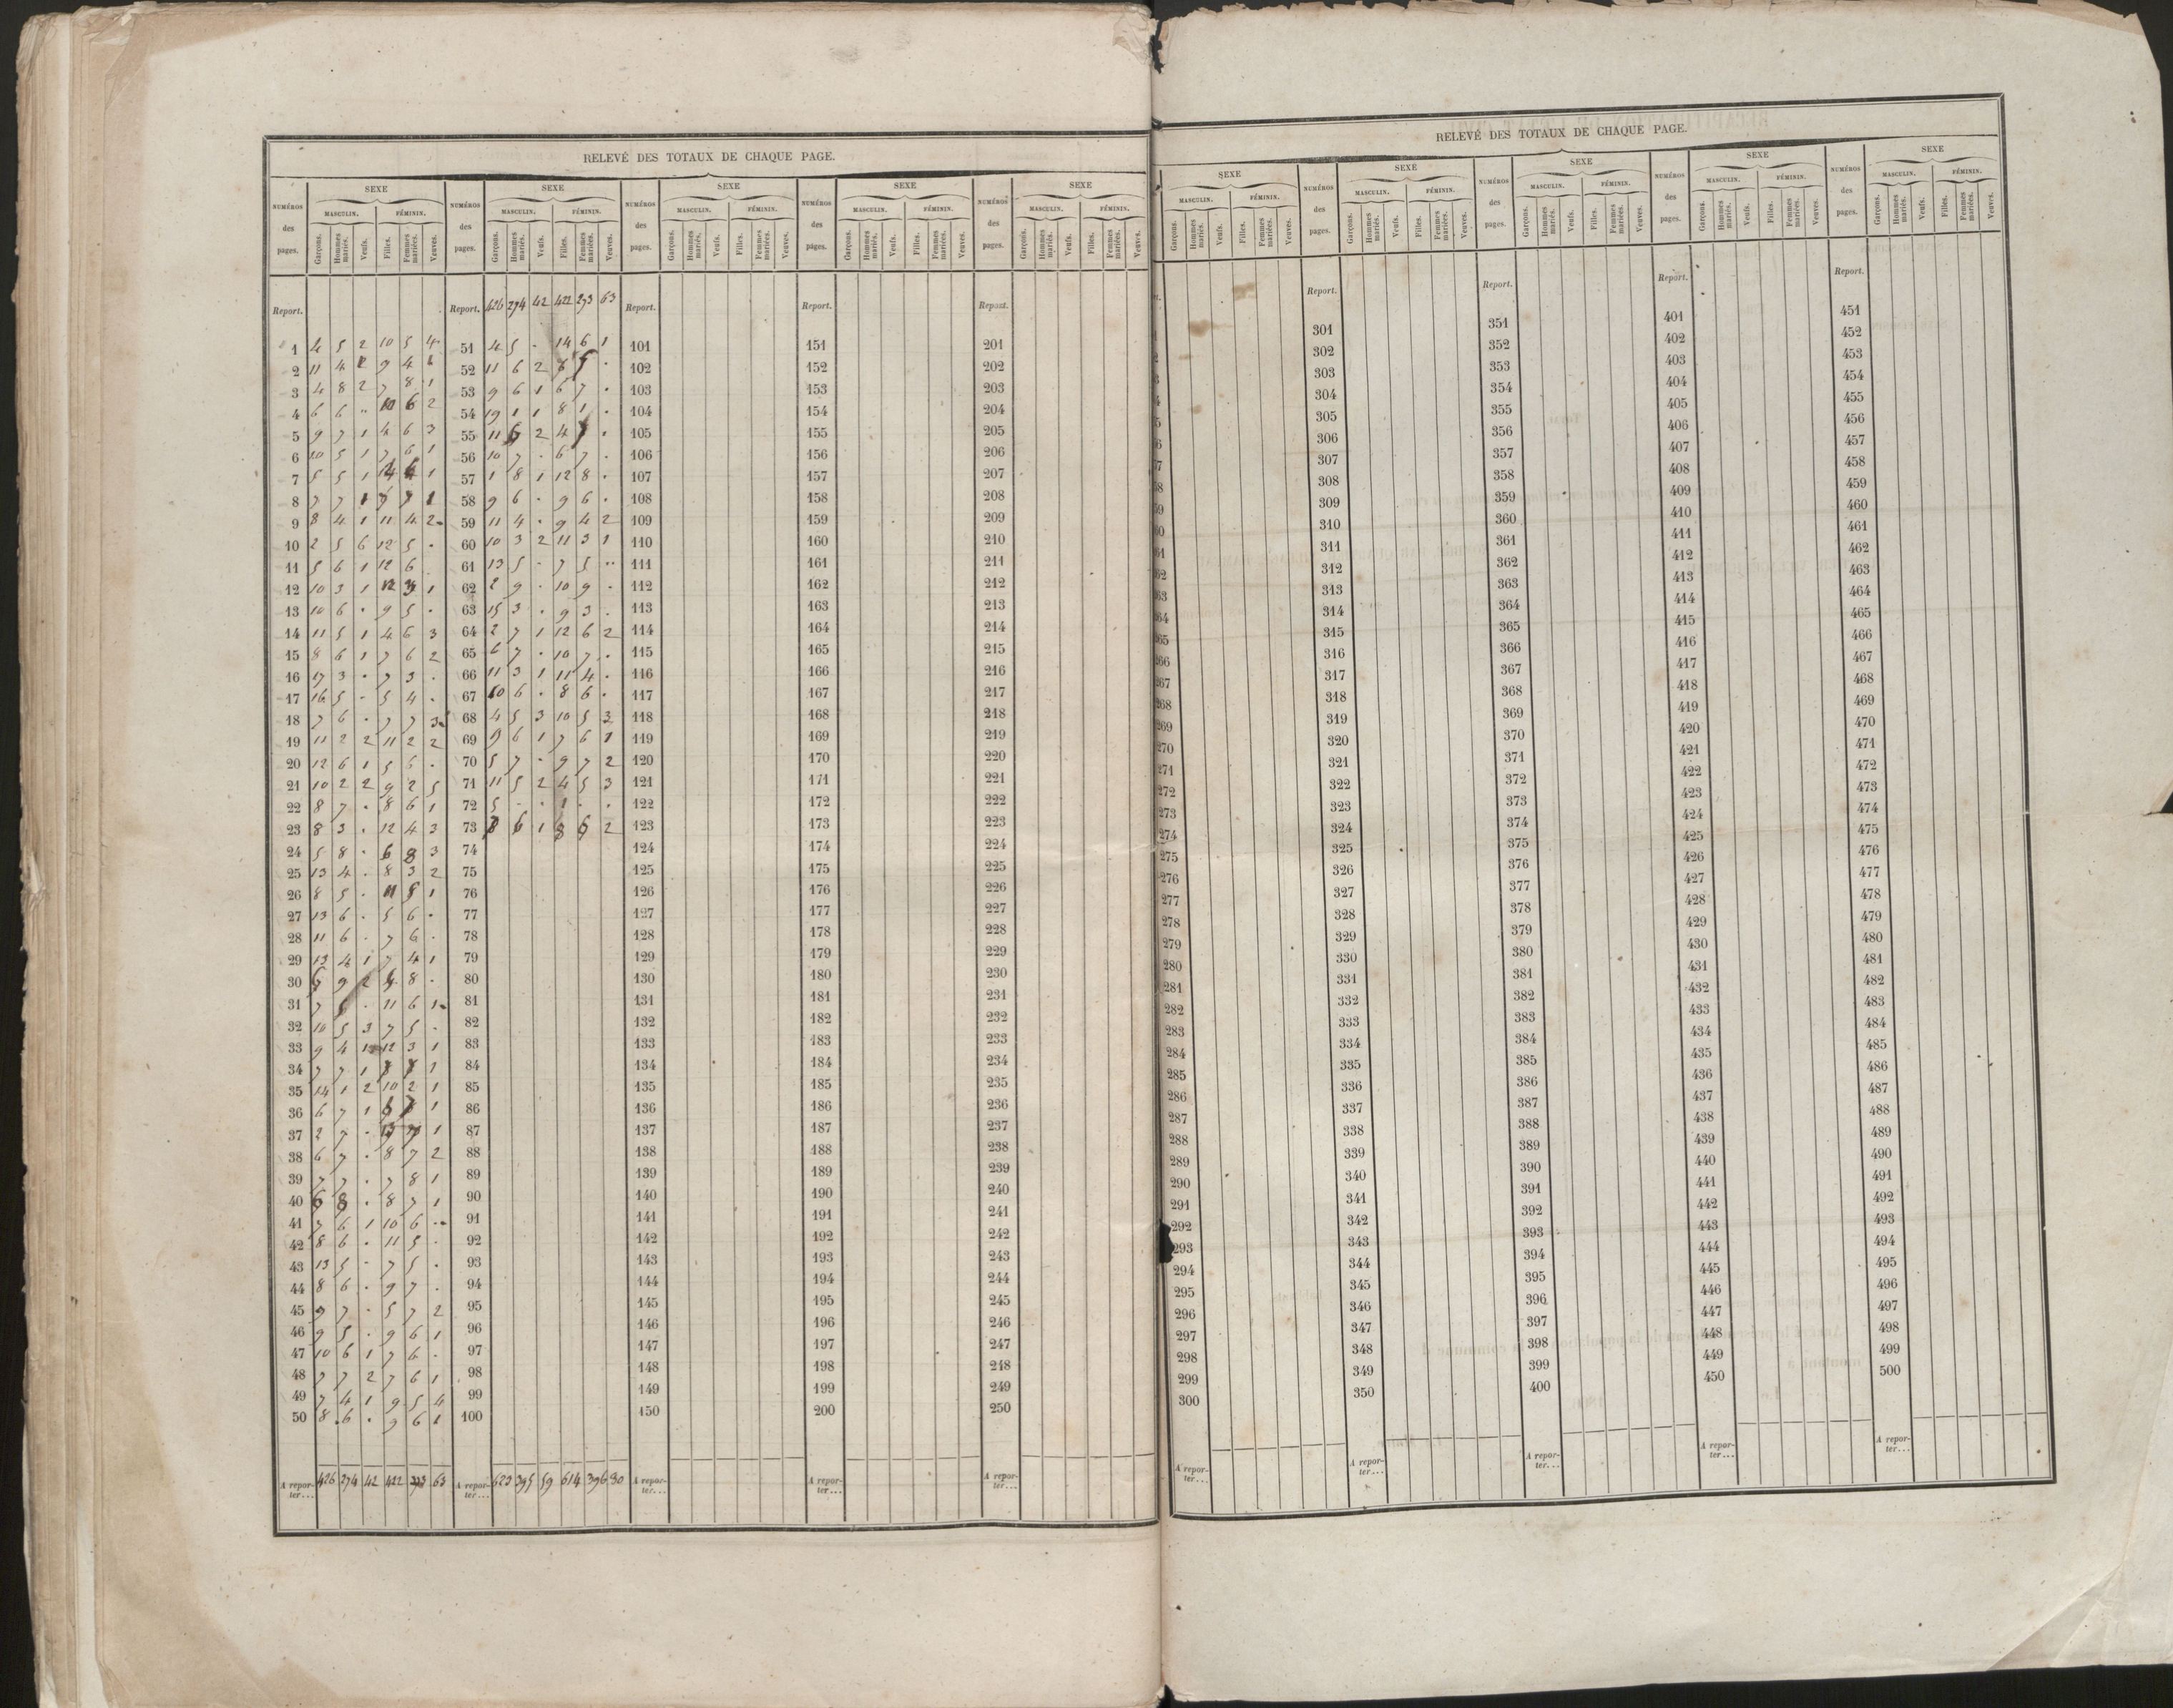 RELEVÉ DES TOTAUX DE CHAQUE PAGE.
NUMÉROS des pages. SEXE MASCULIN. FÉMININ. Garçons. Hommes mariés. Veufs. Filles. Femmes mariées. Veuves.
Report. Report. 426 274 42 422 273 63 Report. Report. Report.
1 4 5 2 10 5 4 51 4 5 - 14 6 1 101 151 201
2 11 4 2 9 4 52 11 6 2 102 152 202
3 4 8 2 7 8 1 53 9 6 1 6 7 . 103 153 203
4 6 6 .. 10 6 2 54 19 1 1 8 1 . 104 154 204
5 9 7 1 4 6 3 55 11 6 2 4 . 105 155 205
6 10 5 1 7 6 1 56 10 7 . 6 7 . 106 156 206
7 5 5 1 1 57 1 8 1 12 8 . 107 157 207
8 7 7 1 7 7 1 58 9 6 . 9 6 . 108 158 208
9 8 4 1 11 4 2 59 11 4 . 9 4 2 109 159 209
10 2 5 6 12 5 . 60 10 3 2 11 3 1 110 160 210
11 5 6 1 12 6 . 61 13 5 - 7 5 .. 111 161 211
12 10 3 1 12 1 62 2 9 . 10 9 . 112 162 212
13 10 6 . 9 5 . 63 15 3 . 9 3 . 113 163 213
14 11 5 1 4 6 3 64 2 7 1 12 6 2 114 164 214
15 8 6 1 7 6 2 65 6 7 . 10 7 . 115 165 215
16 17 3 . 7 3 . 66 11 3 1 11 4 . 116 166 216
17 16 5 . 5 4 . 67 10 6 . 8 6 . 117 167 217
18 7 6 . 7 7 3 68 4 5 3 10 5 3 118 168 218
19 11 2 2 11 2 2 69 9 6 1 7 6 1 119 169 219
20 12 6 1 5 6 . 70 5 7 . 9 7 2 120 170 220
21 10 2 2 9 2 5 71 11 5 2 4 5 3 121 171 221
22 8 7 . 8 6 1 72 5 - . 1 . . 122 172 222
23 8 3 . 12 4 3 73 8 6 1 8 6 2 123 173 223
24 5 8 . 6 8 3 74 124 174 224
25 13 4 . 8 3 2 75 125 175 225
26 8 5 . 11 5 1 76 126 176 226
27 13 6 . 5 6 . 77 127 177 227
28 11 6 . 7 6 . 78 128 178 228
29 13 4 1 7 4 1 79 129 179 229
30 9 2 8 . 80 130 180 230
31 7 . 11 6 1 81 131 181 231
32 10 5 3 7 5 . 82 132 182 232
33 9 4 12 3 1 83 133 183 233
34 7 7 1 84 134 184 234
35 14 1 2 10 2 1 85 135 185 235
36 6 7 1 1 86 136 186 236
37 2 7 . 1 87 137 187 237
38 6 7 . 8 7 2 88 138 188 238
39 7 7 . 7 8 1 89 139 189 239
40 6 8 . 8 7 1 90 140 190 240
41 7 6 1 10 6 .. 91 141 191 241
42 8 6 . 11 5 . 92 142 192 242
43 13 5 - 7 5 . 93 143 193 243
44 8 6 . 9 7 . 94 144 194 244
45 9 7 . 5 7 2 95 145 195 245
46 9 5 . 9 6 1 96 146 196 246
47 10 6 1 7 6 . 97 147 197 247
48 7 7 2 7 6 1 98 148 198 248
49 7 4 1 9 5 4 99 149 199 249
50 8 6 . 9 6 1 100 150 200 250
A reporter... 426 274 42 422 273 63 A reporter... 623 395 59 614 396 90 A reporter... A reporter... A reporter...
RELEVÉ DES TOTAUX DE CHAQUE PAGE.
SEXE MASCULIN. FÉMININ. Garçons. Hommes mariés. Veufs. Filles. Femmes mariées. Veuves. NUMÉROS des pages.
Report. Report. Report. Report.
301 351 401 451
302 352 402 452
303 353 403 453
304 354 404 454
305 355 405 455
306 356 406 456
307 357 407 457
308 358 408 458
309 359 409 459
310 360 410 460
311 361 411 461
312 362 412 462
313 363 413 463
314 364 414 464
315 365 415 465
316 366 416 466
317 367 417 467
318 368 418 468
319 369 419 469
320 370 420 470
271 321 371 421 471
272 322 372 422 472
273 323 373 423 473
274 324 374 424 474
275 325 375 425 475
276 326 376 426 476
277 327 377 427 477
278 328 378 428 478
279 329 379 429 479
280 330 380 430 480
281 331 381 431 481
282 332 382 432 482
283 333 383 433 483
284 334 384 434 484
285 335 385 435 485
286 336 386 436 486
287 337 387 437 487
288 338 388 438 488
289 339 389 439 489
290 340 390 440 490
291 341 391 441 491
292 342 392 442 492
293 343 393 443 493
294 344 394 444 494
295 345 395 445 495
296 346 396 446 496
297 347 397 447 497
298 348 398 448 498
299 349 399 449 499
300 350 400 450 500
A reporter... A reporter... A reporter... A reporter... A reporter...